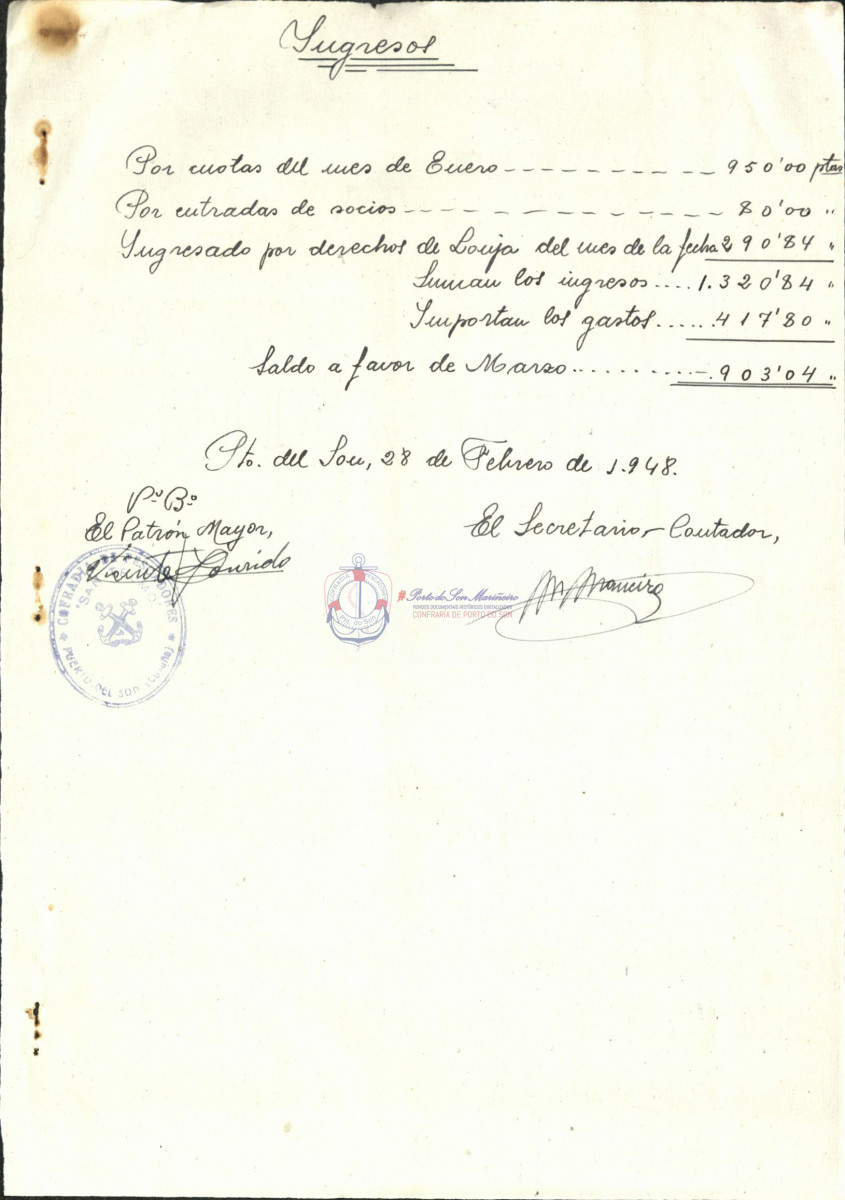 Ingresos
Por cuotas del mes de Enero --------- 950'00 ptas
Por entradas de socios ------------ 80'00 "
Ingresado por derechos de Lonja del mes de la fecha 290'84 "
Suman los ingresos .... 1.320'84 "
Importan los gastos ...... 417'80 "
Saldo a favor de Marzo .......... 903'04 "
Pto. del Son, 28 de Febrero de 1.948.
Vº Bº
El Patrón Mayor,
El Secretario-Contador,
Vicente
COFRADIA DE PESCADORES
PUERTO DEL SON (Coruña)
Pto. do Son
#Porto do Son Mariñeiro
FONDOS DOCUMENTAIS HISTÓRICOS DIXITALIZADOS
CONFRARÍA DE PORTO DO SON